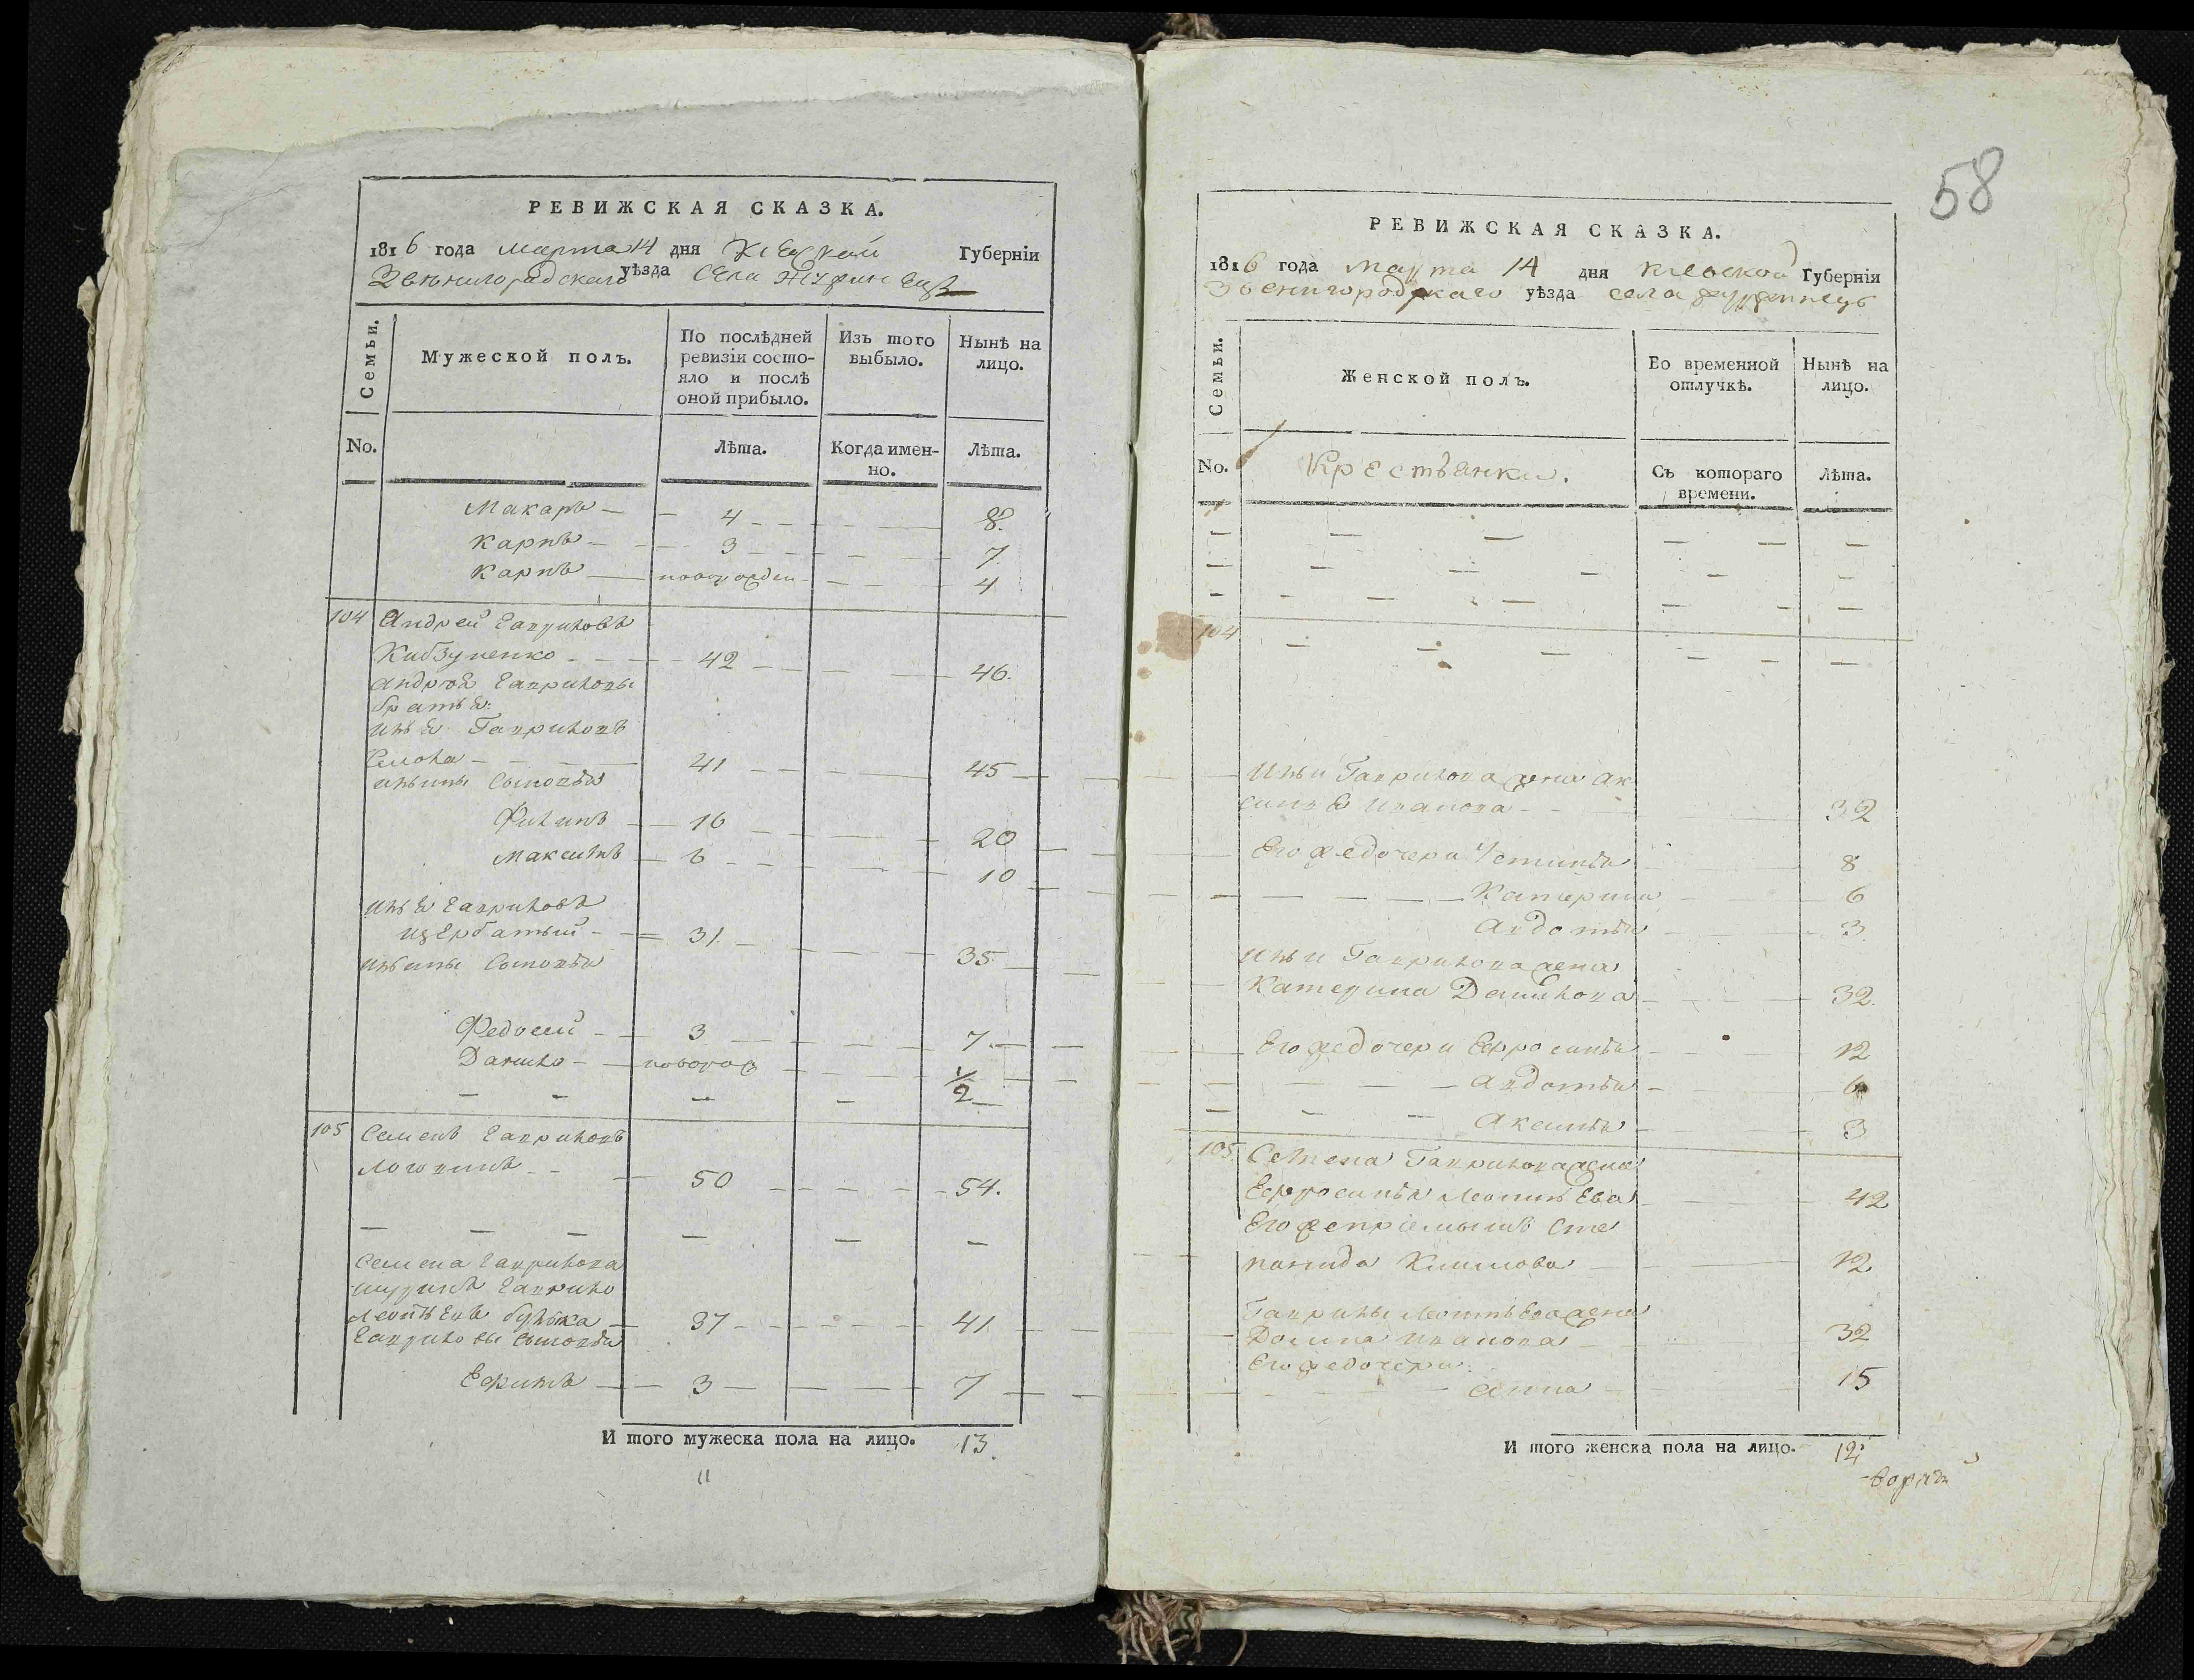 РЕВИЖСКАЯ СКАЗКА.
1816 года Марта 14 дня Кіевской Губерніи
Звенигородскаго уѣзда Села Журжинецъ
Семьи.
Мужеской полъ.
По послѣдней ревизіи состо-
яло и послѣ
оной прибыло.
Изъ того
выбыло.
Нынѣ на
лицо.
No.
Лѣта.
Когда имен-
но.
Лѣта.
Макаръ — 4 — 8.
Карпъ — 3 — 7.
Карпъ — новорожден — 4
104 Андрей Гавриловъ
42 — 46.
Андрея Гавриловы
братья:
Илья Гавриловъ
41 — 45
Ильины Сыновья
Филипъ — 16 — 20
Максимъ — 6 — 10
Илья Гавриловъ
Щербатый — 31. — 35.
Ильины Сыновья
Федосей — 3 — 7.
Данило — новорож — 1/2
105 Семенъ Гавриловъ
Логвинъ — 50 — 54.
Семена Гаврилова
шуринъ Гаврило
Леонтьевъ — 37 — 41
Гавриловы Сыновья
Ефимъ — 3 — 7
И того мужеска пола на лицо. 13.
58
РЕВИЖСКАЯ СКАЗКА.
1816 года Марта 14 дня Кіевской Губерніи
Звенигородскаго уѣзда села Журжинецъ
Семьи.
Женской полъ.
Во временной
отлучкѣ.
Нынѣ на
лицо.
No.
Крестьянки.
Съ котораго
времени.
Лѣта.
104
Ильи Гаврилова жена Ак
синья Иванова — 32
Его же дочери Устинья 8
Катерина 6
Авдотья 3
Ильи Гаврилова жена
Катерина Данилова 32.
Его же дочери Ефросинья 12
Авдотья 6
Аксинья 3
105. Семена Гаврилова жена
Ефросинья Леонтьева 42
Его же пріемышъ Сте
панида Климова 12
Гаврилы Леонтьева жена
Домна Иванова 32
Его же дочери:
Анна 15
И того женска пола на лицо. 12